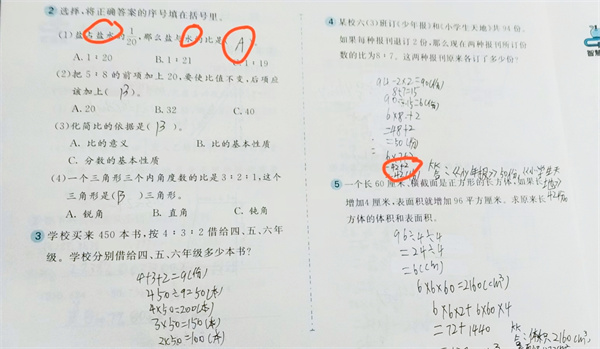 2 选择,将正确答案的序号填在括号里。
(1)盐占盐水的1/20,那么盐与水的比是( A )。
A. 1:20 B. 1:21 C. 1:19
(2)把5:8的前项加上20,要使比值不变,后项应
该加上( B )。
A. 20 B. 32 C. 40
(3)化简比的依据是( B )。
A. 比的意义 B. 比的基本性质
C. 分数的基本性质
(4)一个三角形三个内角度数的比是3:2:1,这个
三角形是( B )三角形。
A. 锐角 B. 直角 C. 钝角
3 学校买来450本书,按4:3:2借给四、五、六年
级。学校分别借给四、五、六年级多少本书?
4+3+2=9(份)
450÷9=50(本)
4×50=200(本)
3×50=150(本)
2×50=100(本)
4 某校六(3)班订《少年报》和《小学生天地》共94份。
如果每种报刊退订2份,那么现在两种报刊所订份
数的比为8:7。这两种报刊原来各订了多少份?
94-2×2=90(份)
8+7=15
90÷15=6(份)
6×8+2
=48+2
=50(份)
6×7+2
=42+2
5 一个长60厘米,横截面是正方形的长方体,如果长
增加4厘米,表面积就增加96平方厘米。求原来长
方体的体积和表面积。
96÷4÷4
=24÷4
=6(cm)
6×6×60=2160(cm³)
6×6×2+6×60×4
=72+1440